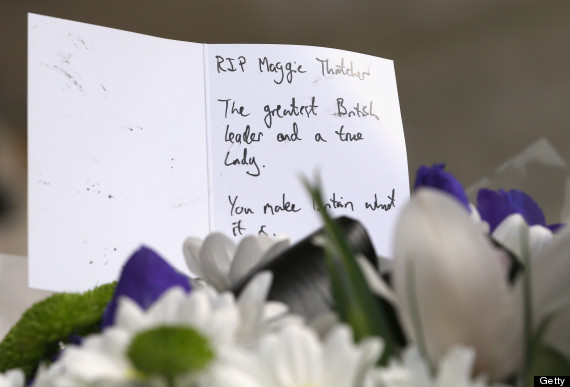 RIP Maggie Thatcher
The greatest British
leader and a true
Lady.
You make Britain what
it is.
Getty